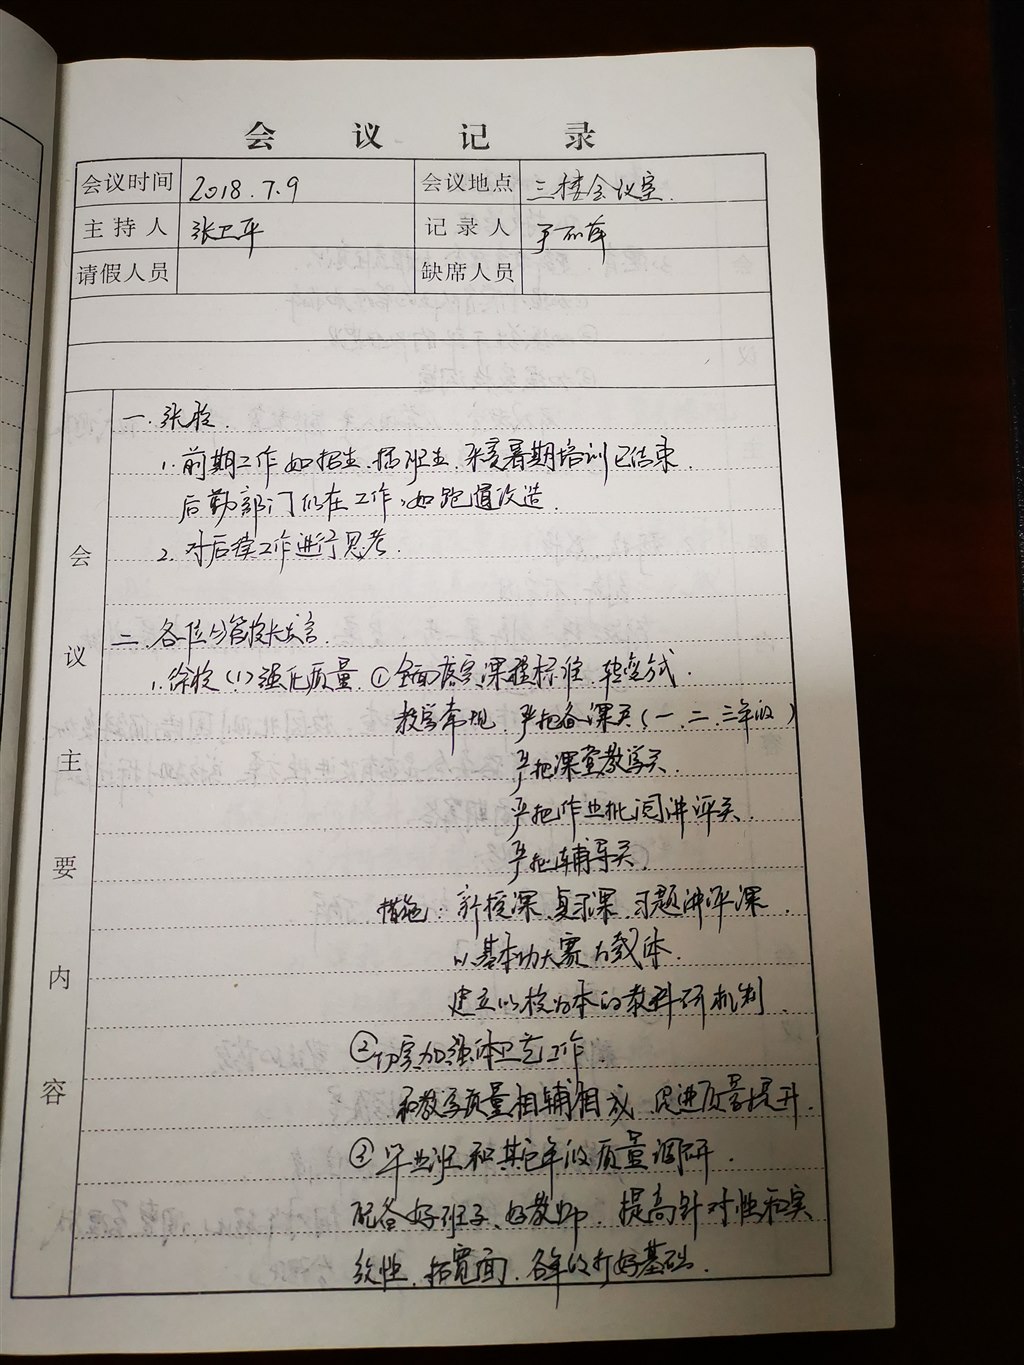 会议记录
会议时间 2018.7.9 会议地点 三楼会议室.
主持人 张卫平 记录人
请假人员 缺席人员
会议主要内容
一.张校.
1.前期工作如招生、插班生、暑期培训已结束.
后勤部门仍在工作,如跑道改造.
2.对后续工作进行思考.
二.各位分管校长发言.
1.徐校(1)强化质量.①全面落实课程标准、转变方式.
教学常规 严把备课关(一、二、三年级)
严把课堂教学关.
严把作业批阅讲评关.
严把辅导关.
措施:新授课、复习课、习题讲评课.
以基本功大赛为载体.
建立以校为本的教科研机制.
②切实加强体卫艺工作
和教学质量相辅相成,促进质量提升.
③毕业班和其它年级质量调研.
配备好班子、好教师,提高针对性和实
效性,拓宽面,各年级打好基础.